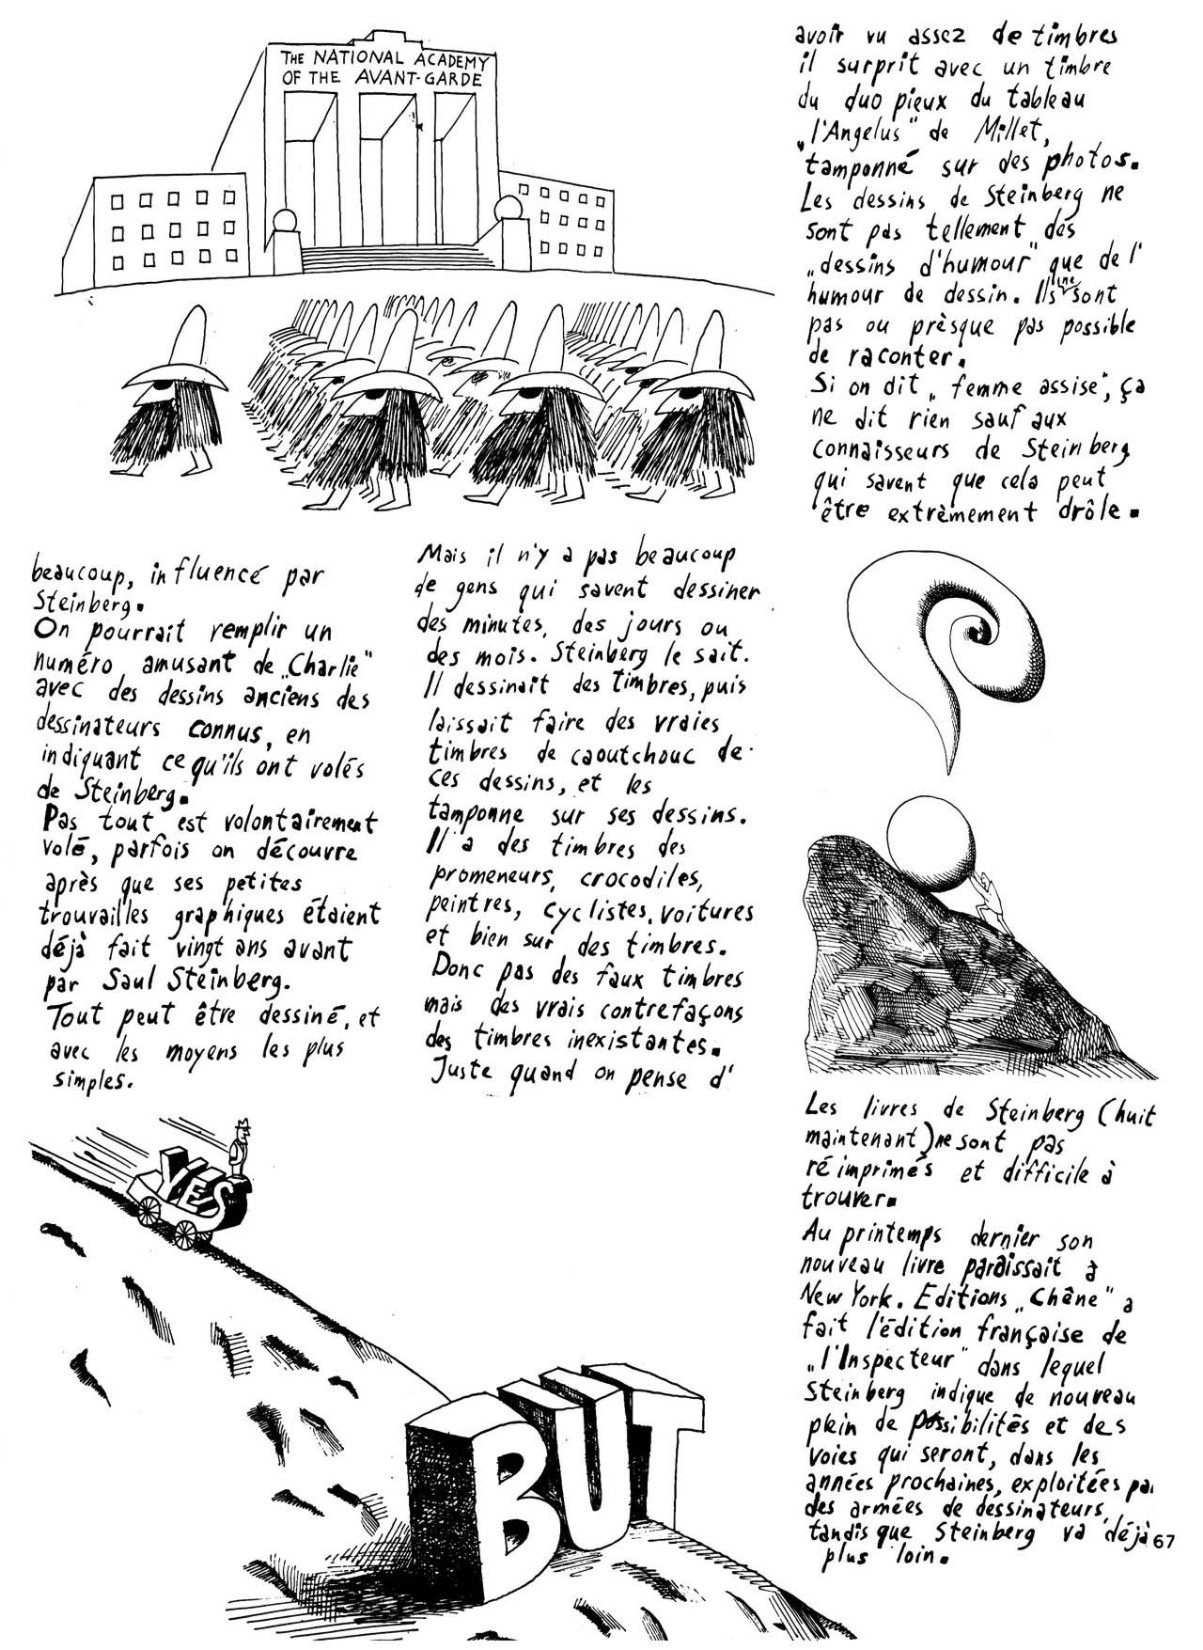 THE NATIONAL ACADEMY
OF THE AVANT-GARDE
beaucoup, influencé par
Steinberg.
On pourrait remplir un
numéro amusant de „Charlie"
avec des dessins anciens des
dessinateurs connus, en
indiquant ce qu'ils ont volés
de Steinberg.
Pas tout est volontairement
volé, parfois on découvre
après que ses petites
trouvailles graphiques étaient
déjà fait vingt ans avant
par Saul Steinberg.
Tout peut être dessiné, et
avec les moyens les plus
simples.
Mais il n'y a pas beaucoup
de gens qui savent dessiner
des minutes, des jours ou
des mois. Steinberg le sait.
Il dessinait des timbres, puis
laissait faire des vraies
timbres de caoutchouc de
ces dessins, et les
tamponne sur ses dessins.
Il a des timbres des
promeneurs, crocodiles,
peintres, cyclistes, voitures
et bien sur des timbres.
Donc pas des faux timbres
mais des vrais contrefaçons
des timbres inexistantes.
Juste quand on pense d'
avoir vu assez de timbres
il surprit avec un timbre
du duo pieux du tableau
„l'Angelus" de Millet,
tamponné sur des photos.
Les dessins de Steinberg ne
sont pas tellement des
„dessins d'humour" que de l'
humour de dessin. Ils ne sont
pas ou prèsque pas possible
de raconter.
Si on dit „femme assise", ça
ne dit rien sauf aux
connaisseurs de Steinberg
qui savent que cela peut
être extrèmement drôle.
Les livres de Steinberg (huit
maintenant) ne sont pas
réimprimés et difficile à
trouver.
Au printemps dernier son
nouveau livre paraissait à
New York. Editions „Chêne" a
fait l'édition française de
„l'Inspecteur" dans lequel
Steinberg indique de nouveau
plein de possibilités et des
voies qui seront, dans les
années prochaines, exploitées par
des armées de dessinateurs,
tandis que Steinberg va déjà
plus loin.
YES
BUT
67